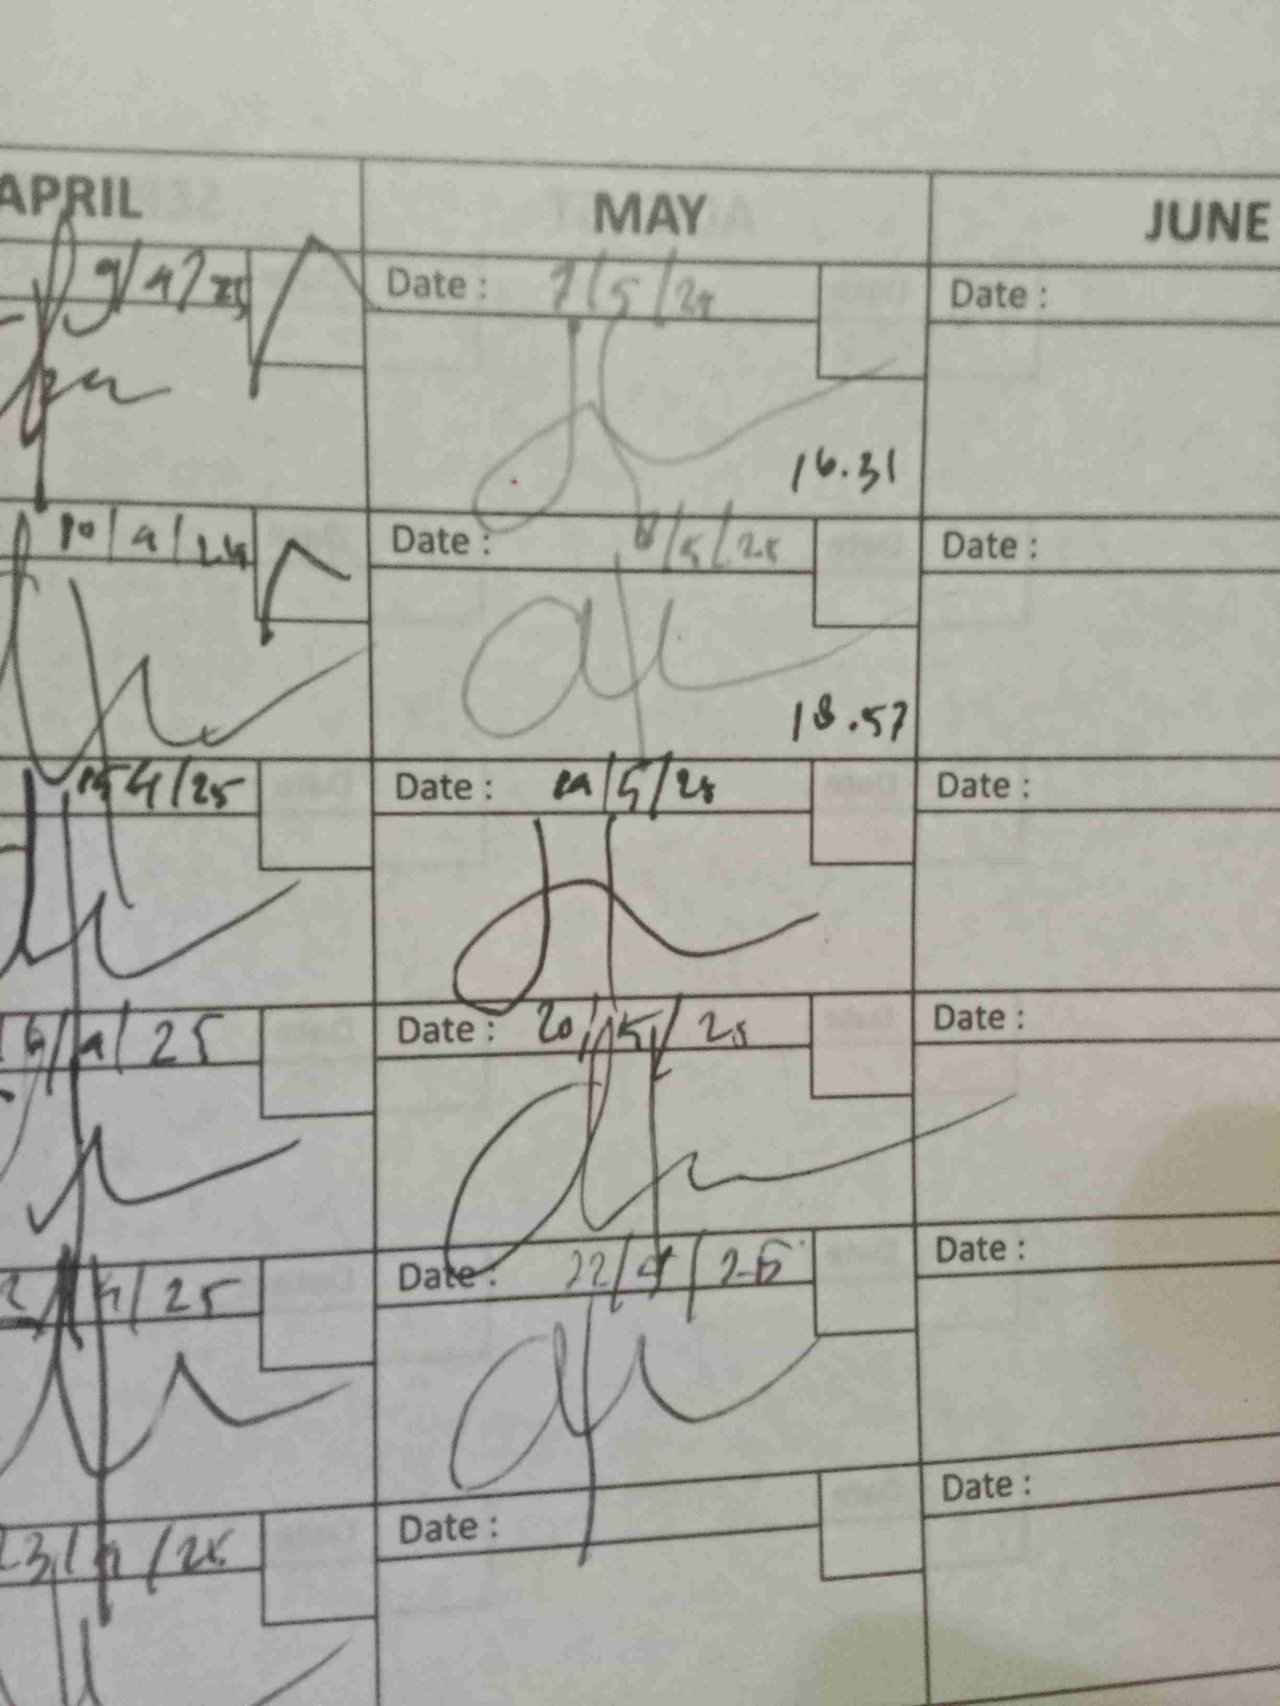 APRIL MAY JUNE
9/4/25 Date : 7/5/25 Date :
16.31
10/4/25 Date : 8/5/25 Date :
18.57
15/4/25 Date : 19/5/25 Date :
16/4/25 Date : 20/5/25 Date :
/4/25 Date : 22/4/25 Date :
23/4/25 Date : Date :